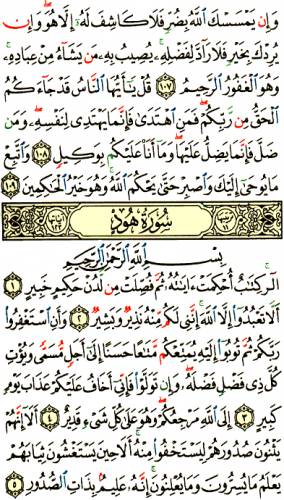 وَإِن يَمْسَسْكَ ٱللَّهُ بِضُرٍّ فَلَا كَاشِفَ لَهُۥٓ إِلَّا هُوَ وَإِن
يُرِدْكَ بِخَيْرٍ فَلَا رَآدَّ لِفَضْلِهِۦ يُصِيبُ بِهِۦ مَن يَشَآءُ مِنْ عِبَادِهِۦ
وَهُوَ ٱلْغَفُورُ ٱلرَّحِيمُ ١٠٧ قُلْ يَٰٓأَيُّهَا ٱلنَّاسُ قَدْ جَآءَكُمُ
ٱلْحَقُّ مِن رَّبِّكُمْ فَمَنِ ٱهْتَدَىٰ فَإِنَّمَا يَهْتَدِى لِنَفْسِهِۦ وَمَن
ضَلَّ فَإِنَّمَا يَضِلُّ عَلَيْهَا وَمَآ أَنَا۠ عَلَيْكُم بِوَكِيلٍ ١٠٨ وَٱتَّبِعْ
مَا يُوحَىٰٓ إِلَيْكَ وَٱصْبِرْ حَتَّىٰ يَحْكُمَ ٱللَّهُ وَهُوَ خَيْرُ ٱلْحَٰكِمِينَ ١٠٩
سُورَةُ هُودٍ
بِسْمِ ٱللَّهِ ٱلرَّحْمَٰنِ ٱلرَّحِيمِ
الٓر كِتَٰبٌ أُحْكِمَتْ ءَايَٰتُهُۥ ثُمَّ فُصِّلَتْ مِن لَّدُنْ حَكِيمٍ خَبِيرٍ ١
أَلَّا تَعْبُدُوٓا۟ إِلَّا ٱللَّهَ إِنَّنِى لَكُم مِّنْهُ نَذِيرٌ وَبَشِيرٌ ٢ وَأَنِ ٱسْتَغْفِرُوا۟
رَبَّكُمْ ثُمَّ تُوبُوٓا۟ إِلَيْهِ يُمَتِّعْكُم مَّتَٰعًا حَسَنًا إِلَىٰٓ أَجَلٍ مُّسَمًّى وَيُؤْتِ
كُلَّ ذِى فَضْلٍ فَضْلَهُۥ وَإِن تَوَلَّوْا۟ فَإِنِّىٓ أَخَافُ عَلَيْكُمْ عَذَابَ يَوْمٍ
كَبِيرٍ ٣ إِلَى ٱللَّهِ مَرْجِعُكُمْ وَهُوَ عَلَىٰ كُلِّ شَىْءٍ قَدِيرٌ ٤ أَلَآ إِنَّهُمْ
يَثْنُونَ صُدُورَهُمْ لِيَسْتَخْفُوا۟ مِنْهُ أَلَا حِينَ يَسْتَغْشُونَ ثِيَابَهُمْ
يَعْلَمُ مَا يُسِرُّونَ وَمَا يُعْلِنُونَ إِنَّهُۥ عَلِيمٌۢ بِذَاتِ ٱلصُّدُورِ ٥